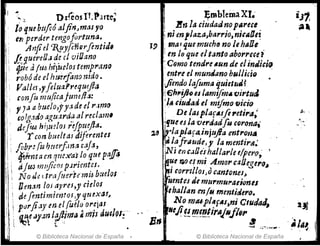 Dſcos Iỉ.Parte,
lo que buſcó al fin, mas yo
en perder tengo fortuna.
Anſi el Ruyſeñor ſentido
ſe querella de el villano
que à ſus hijuelos temprano
robó de el huerfano nido.
Valles, y ſelua
con ſu muſica funeſta:
y ya a buelo, y ya de el ramo
colgado aguarda al reclamo
de ſus hijuelos reſpueſta.
Y con bueltas diferentes
ſobre ſu huerfana caſa,
cuenta en quexas lo que paſſa
à ſus muſicos parientes.
No de otra ſuerte mis buelos
llenan los ayres, y cielos
de ſentimientos, y quexas,
porſi ay en el ſuelo orejas
que ayan laſtima à mis duelos.
Emblema XI.
En la ciudad no parece
ni en plaza, barrio, ni calle:
mas que mucho no le halle
en lo que el tanto aborrece?
Como tendre aun de el indicio
entre el mundano bullicio
ſiendo laſuma quietud?
Chriſto es la miſma virtud
la ciudad el miſmo vicio
De las plaças ſe retira,
que es la verdad ſu corona;
y la plaça injuſta entrona
la fraude, y la mentira:
Ni en calles hallarle eſpero,
que no es mi Amor callegero,
ni corrillos, ò cantones,
fuentes de murmuraciones
ſe hallan en ſu mentidero.
No mas plaças, ni Ciudad,
19
20
137
© Biblioteca Nacional de España
© Biblioteca Nacional de España